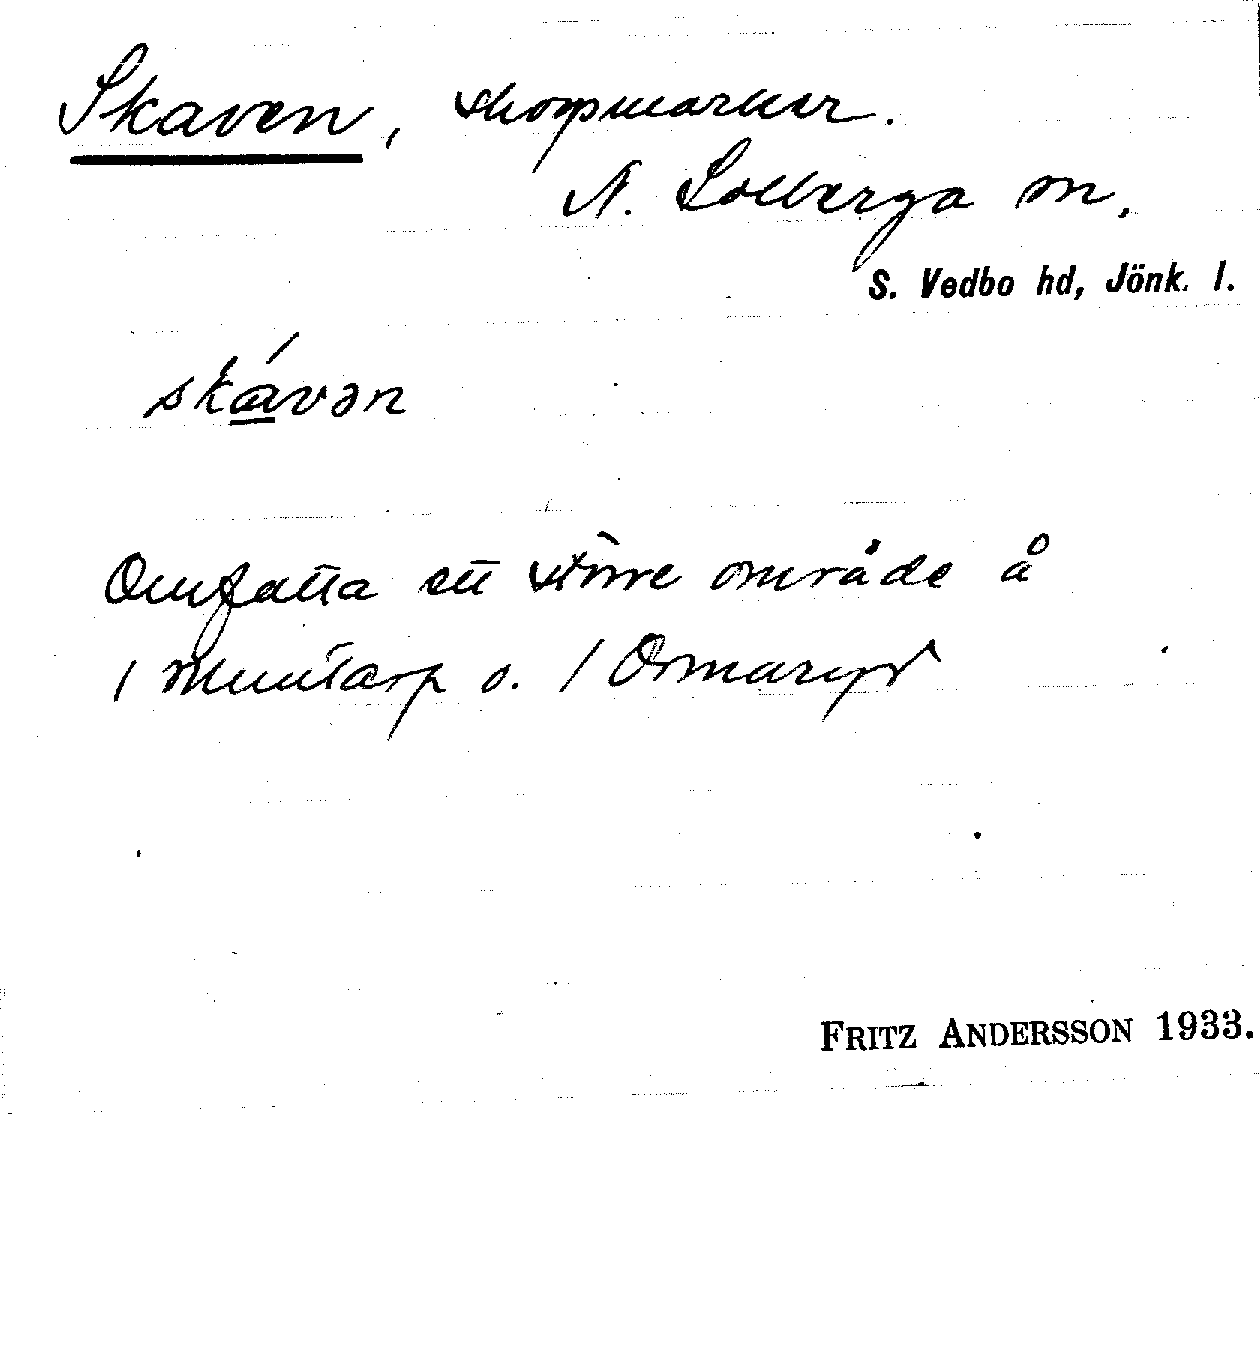 Skaven, skogsmarker.
N. Solberga sn,
S. Vedbo hd, Jönk. l.
skávən
Omfatta ett större område å
1 Muntarp o. 1 Ormaryd
FRITZ ANDERSSON 1933.